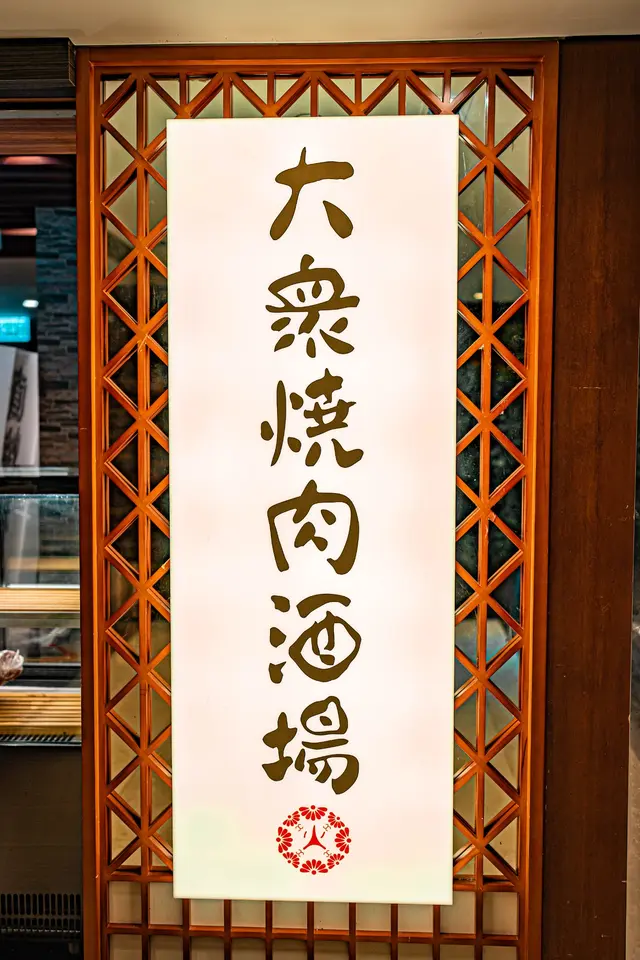 大衆焼肉酒場